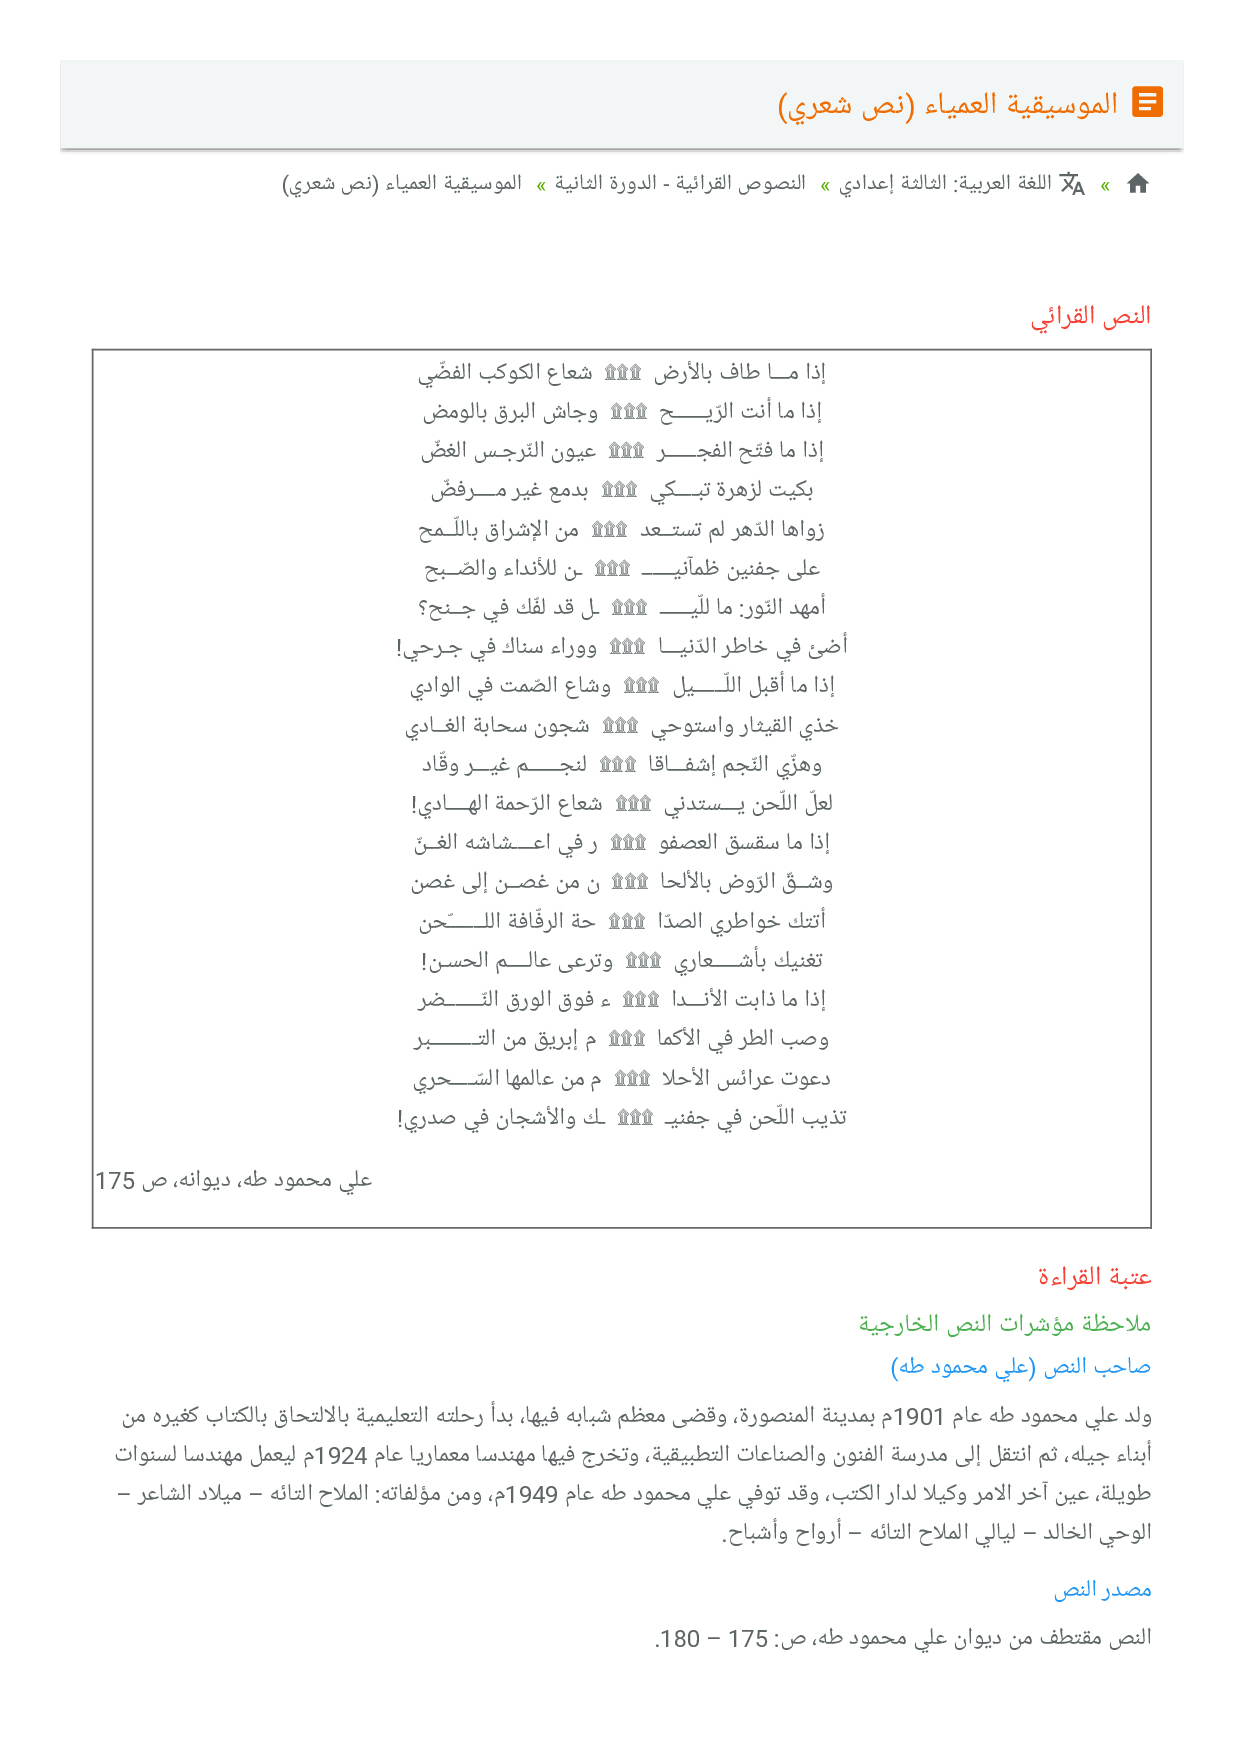 الموسيقية العمياء (نص شعري)
» اللغة العربية: الثالثة إعدادي » النصوص القرائية - الدورة الثانية » الموسيقية العمياء (نص شعري)
النص القرائي
إذا مـــا طاف بالأرض ۩۩۩ شعاع الكوكب الفضّي
إذا ما أنت الرّيـــــــح ۩۩۩ وجاش البرق بالومض
إذا ما فتّح الفجـــــــر ۩۩۩ عيون النّرجـس الغضّ
بكيت لزهرة تبــــكي ۩۩۩ بدمع غير مــــرفضّ
زواها الدّهر لم تستــعد ۩۩۩ من الإشراق باللّــمح
على جفنين ظمآنيـــــــ ۩۩۩ ـن للأنداء والصّــبح
أمهد النّور: ما للّيـــــــ ۩۩۩ ـل قد لفّك في جــنح؟
أضئ في خاطر الدّنيـــا ۩۩۩ ووراء سناك في جـرحي!
إذا ما أقبل اللّـــــــيل ۩۩۩ وشاع الصّمت في الوادي
خذي القيثار واستوحي ۩۩۩ شجون سحابة الغــادي
وهزّي النّجم إشفـــاقا ۩۩۩ لنجـــــــم غيـــر وقّاد
لعلّ اللّحن يـــستدني ۩۩۩ شعاع الرّحمة الهــــادي!
إذا ما سقسق العصفو ۩۩۩ ر في اعــــشاشه الغــنّ
وشــقّ الرّوض بالألحا ۩۩۩ ن من غصــن إلى غصن
أتتك خواطري الصدّا ۩۩۩ حة الرفّافة اللـــــــّحن
تغنيك بأشـــــعاري ۩۩۩ وترعى عالــــم الحسـن!
إذا ما ذابت الأنـــدا ۩۩۩ ء فوق الورق النّـــــــضر
وصب الطر في الأكما ۩۩۩ م إبريق من التــــــــــبر
دعوت عرائس الأحلا ۩۩۩ م من عالمها السّـــــحري
تذيب اللّحن في جفنيـ ۩۩۩ ـك والأشجان في صدري!
علي محمود طه، ديوانه، ص 175
عتبة القراءة
ملاحظة مؤشرات النص الخارجية
صاحب النص (علي محمود طه)
ولد علي محمود طه عام 1901م بمدينة المنصورة، وقضى معظم شبابه فيها، بدأ رحلته التعليمية بالالتحاق بالكتاب كغيره من
أبناء جيله، ثم انتقل إلى مدرسة الفنون والصناعات التطبيقية، وتخرج فيها مهندسا معماريا عام 1924م ليعمل مهندسا لسنوات
طويلة، عين آخر الامر وكيلا لدار الكتب، وقد توفي علي محمود طه عام 1949م، ومن مؤلفاته: الملاح التائه – ميلاد الشاعر –
الوحي الخالد – ليالي الملاح التائه – أرواح وأشباح.
مصدر النص
النص مقتطف من ديوان علي محمود طه، ص: 175 – 180.